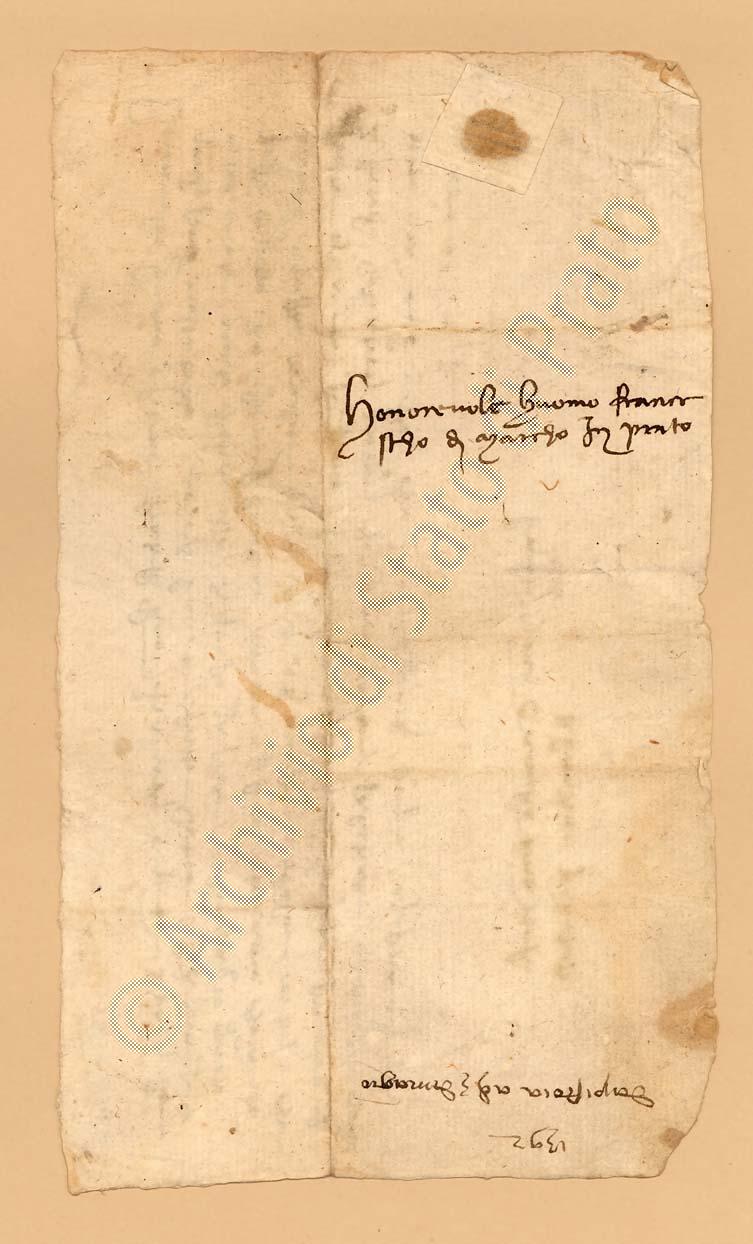 Honorevole huomo Francie
scho di Marcho In Prato
Da pistoia a dì 3 di
1392
© Archivio di Stato di Prato